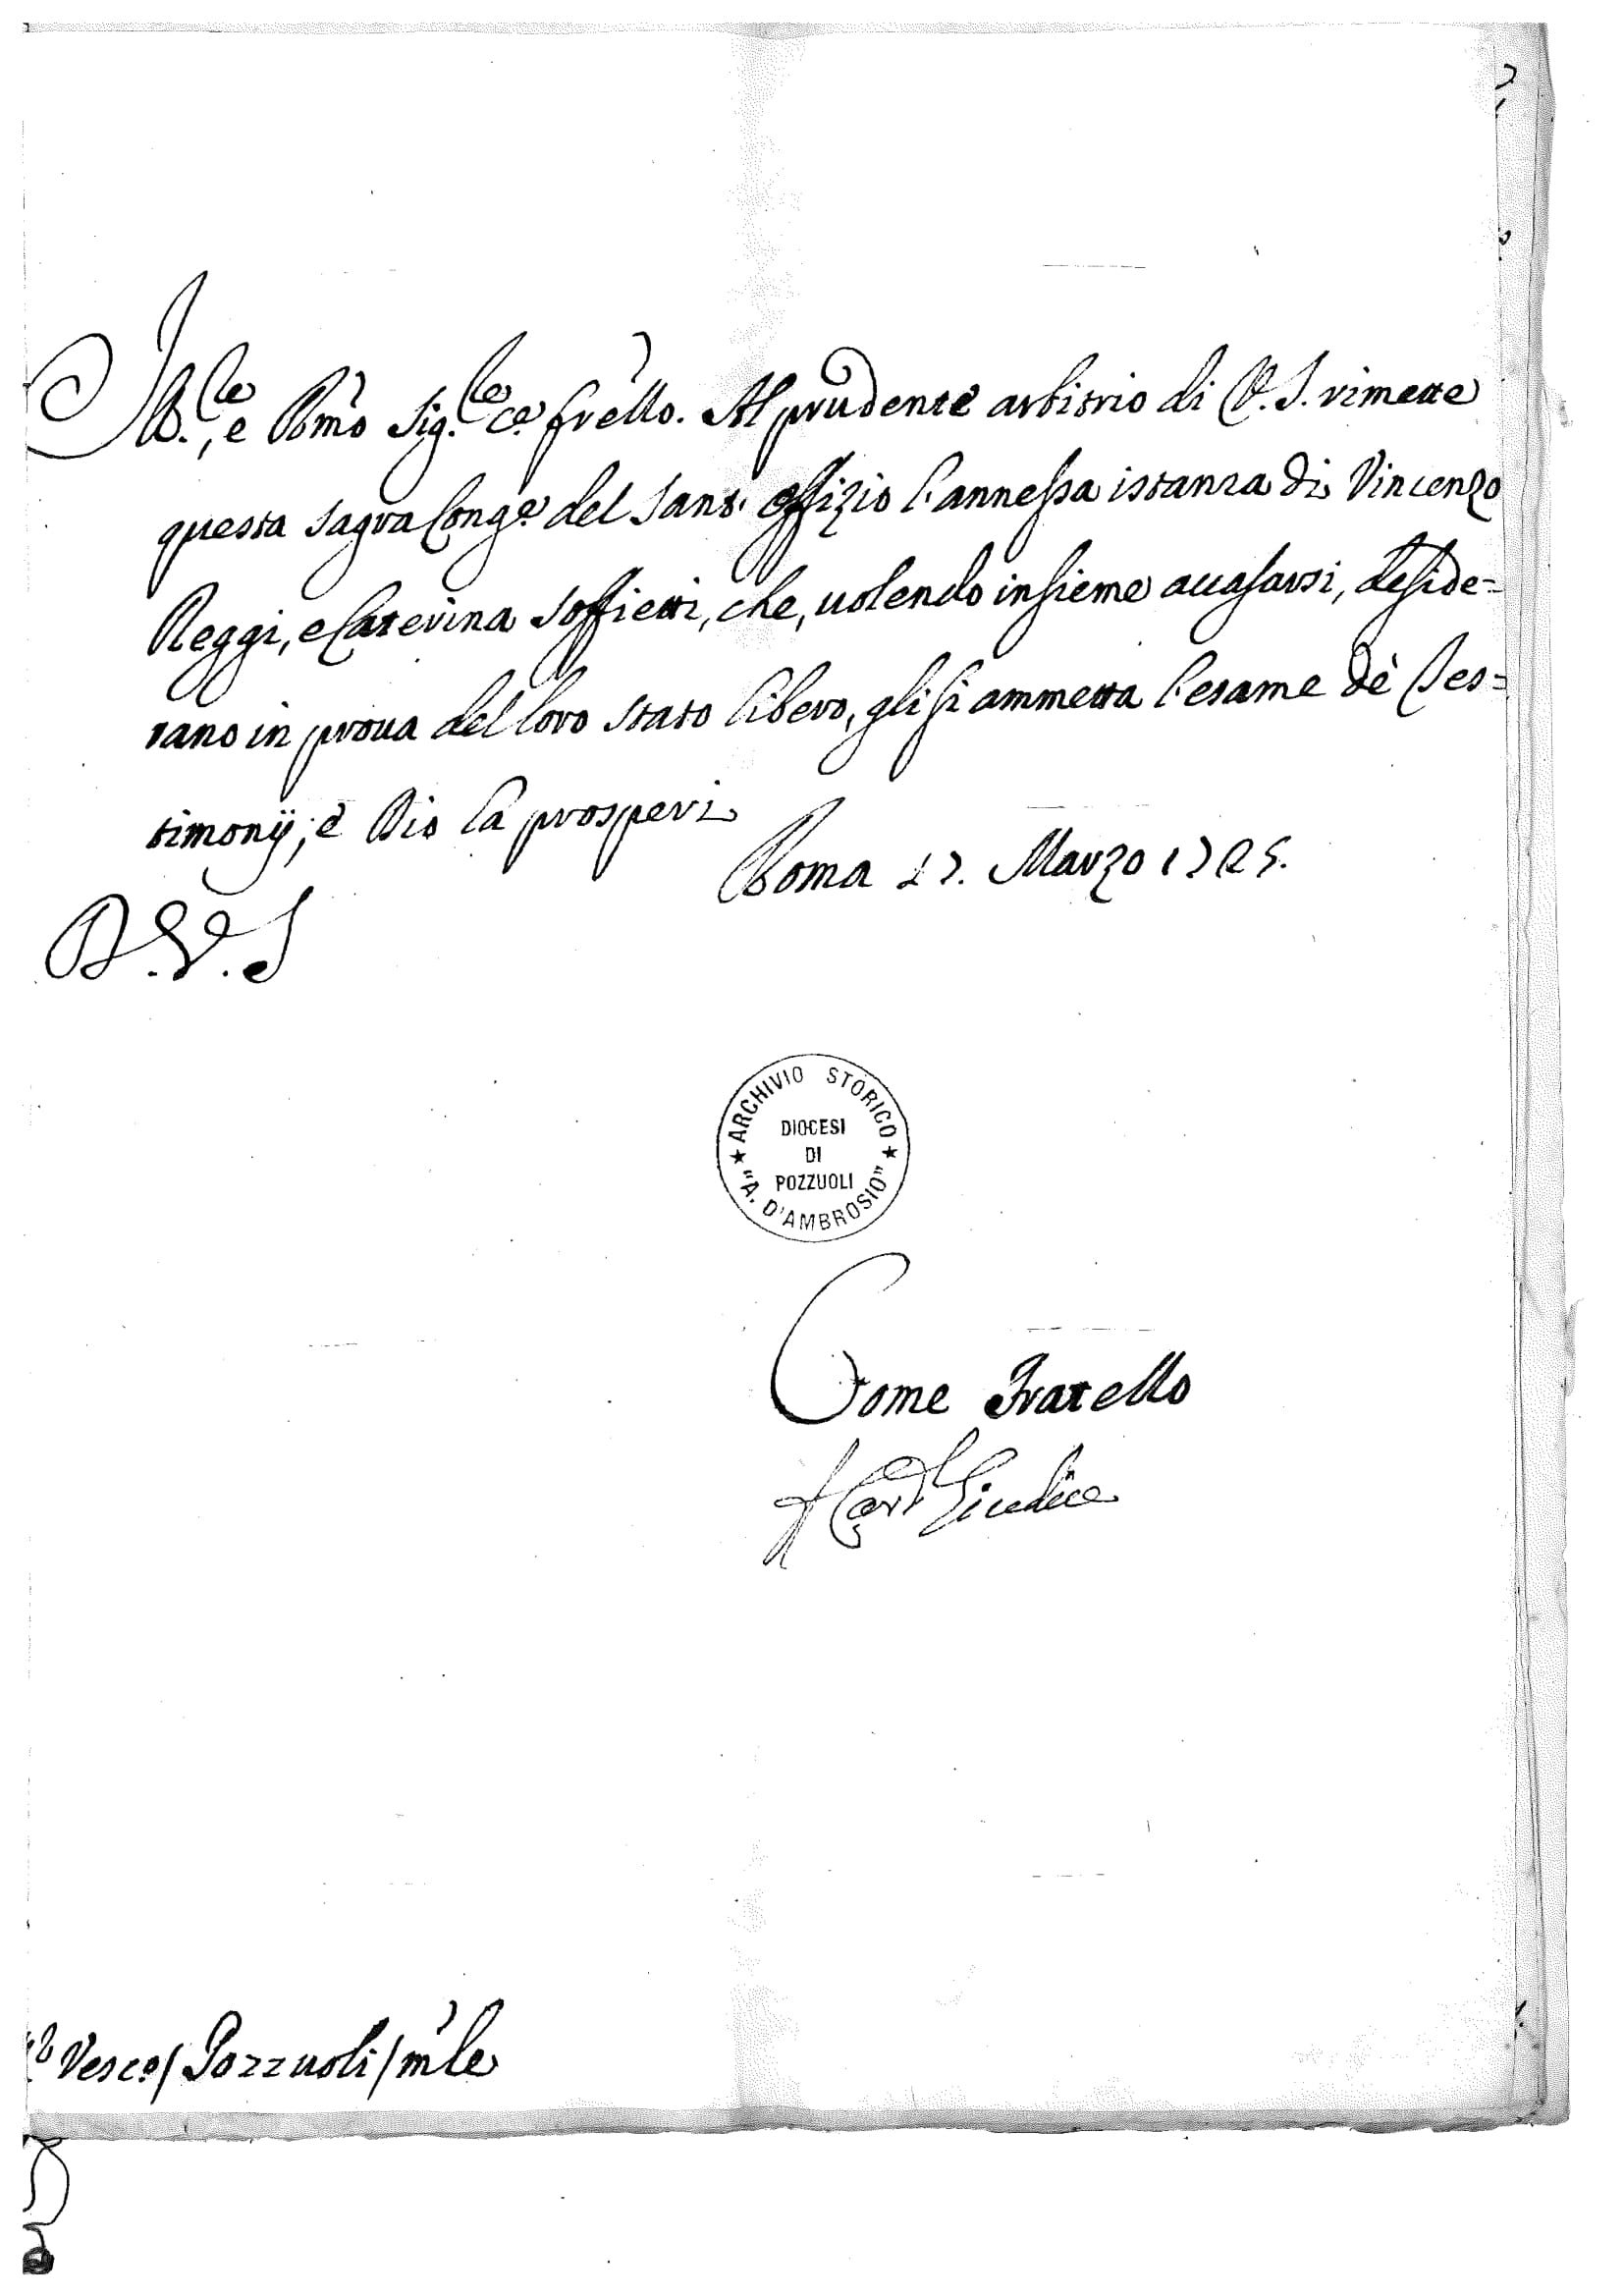 Ill.le, e R.mo Sig.le c.e frello. Al prudente arbitrio di V. S. rimette
questa Sagra Cong.e del Sant. Offizio l'annessa istanza di Vincenzo
Reggi, e Caterina Soffietti, che, uolendo insieme accasarsi, deside=
rano in proua del loro stato libero, gli si ammetta l'esame dè Tes=
timonÿ; e Dio la prosperi
Roma 17. Marzo 1725.
D. V. S
ARCHIVIO STORICO
DIOCESI
DI
POZZUOLI
"A. D'AMBROSIO"
Come Fratello
f Card Giudice
Vesc.o / Pozzuoli / mle